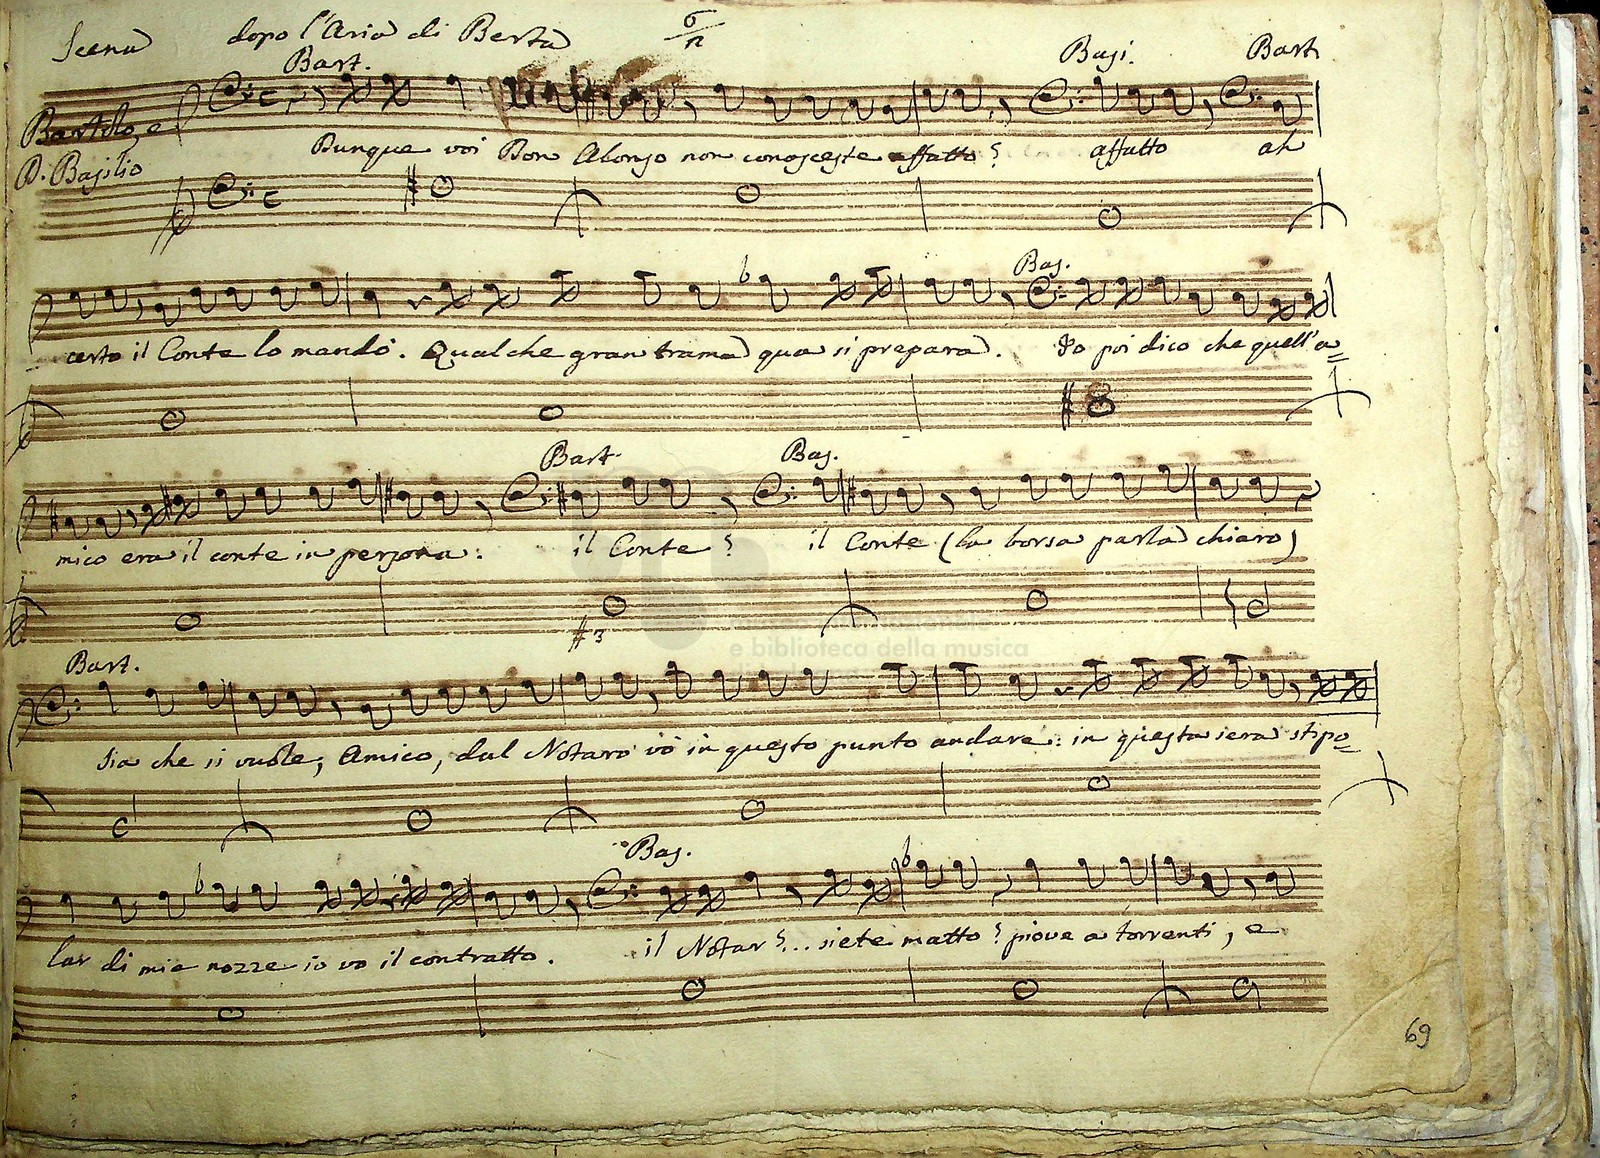 Scena dopo l'Aria di Berta
Bart. Basi. Bart
Bartolo, e
D. Basilio
Dunque voi Don Alonso non conosceste affatto? affatto ah
Bas.
certo il Conte lo mandò. Qualche gran trama qua si prepara. Io poi dico che quell'a=
Bart. Bas.
mico era il conte in persona: il Conte? il Conte (la borsa parla chiaro)
e biblioteca della musica
Bart.
sia che si vuole, Amico, dal Notaro vò in questo punto andare: in questa sera stipo=
Bas.
lar di mie nozze io vo il contratto. il Notar?... siete matto? piove a torrenti, e
69